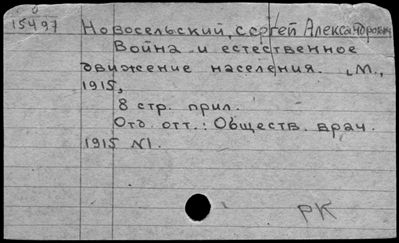 15497
Новосельский, Сергей Александрович
Война и естественное
движение населения. М.,
1915,
8 стр. прил.
Отд. отт.: Обществ. врач.
1915 №1.
РК